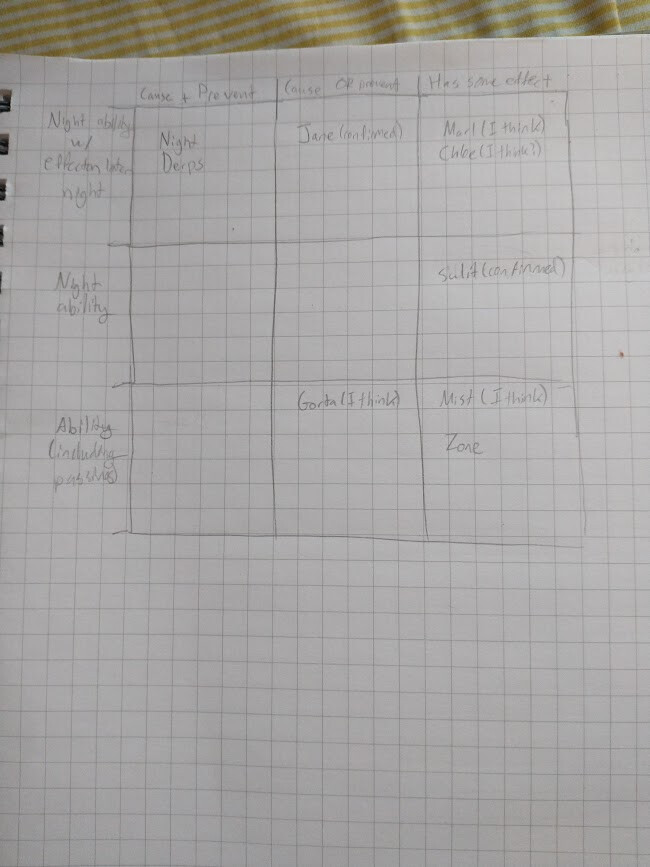 Cause + Prevent
Cause OR prevent
Has some effect
Night ability
w/
effect on later
night
Night
Derps
Jane (confirmed)
Marl (I think)
Chloe (I think?)
Night
ability
Sulit (confirmed)
Ability
(including
passives)
Gorta (I think)
Mist (I think)
Zone